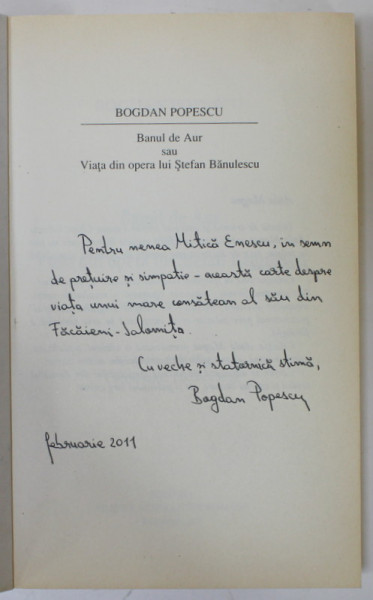 BOGDAN POPESCU
Banul de Aur
sau
Viaţa din opera lui Ştefan Bănulescu
Pentru nenea Mitică Enescu, în semn
de prețuire și simpatie - această carte despre
viața unui mare consătean al său din
Făcăieni - Ialomița.
Cu veche și statornică stimă,
Bogdan Popescu
februarie 2011